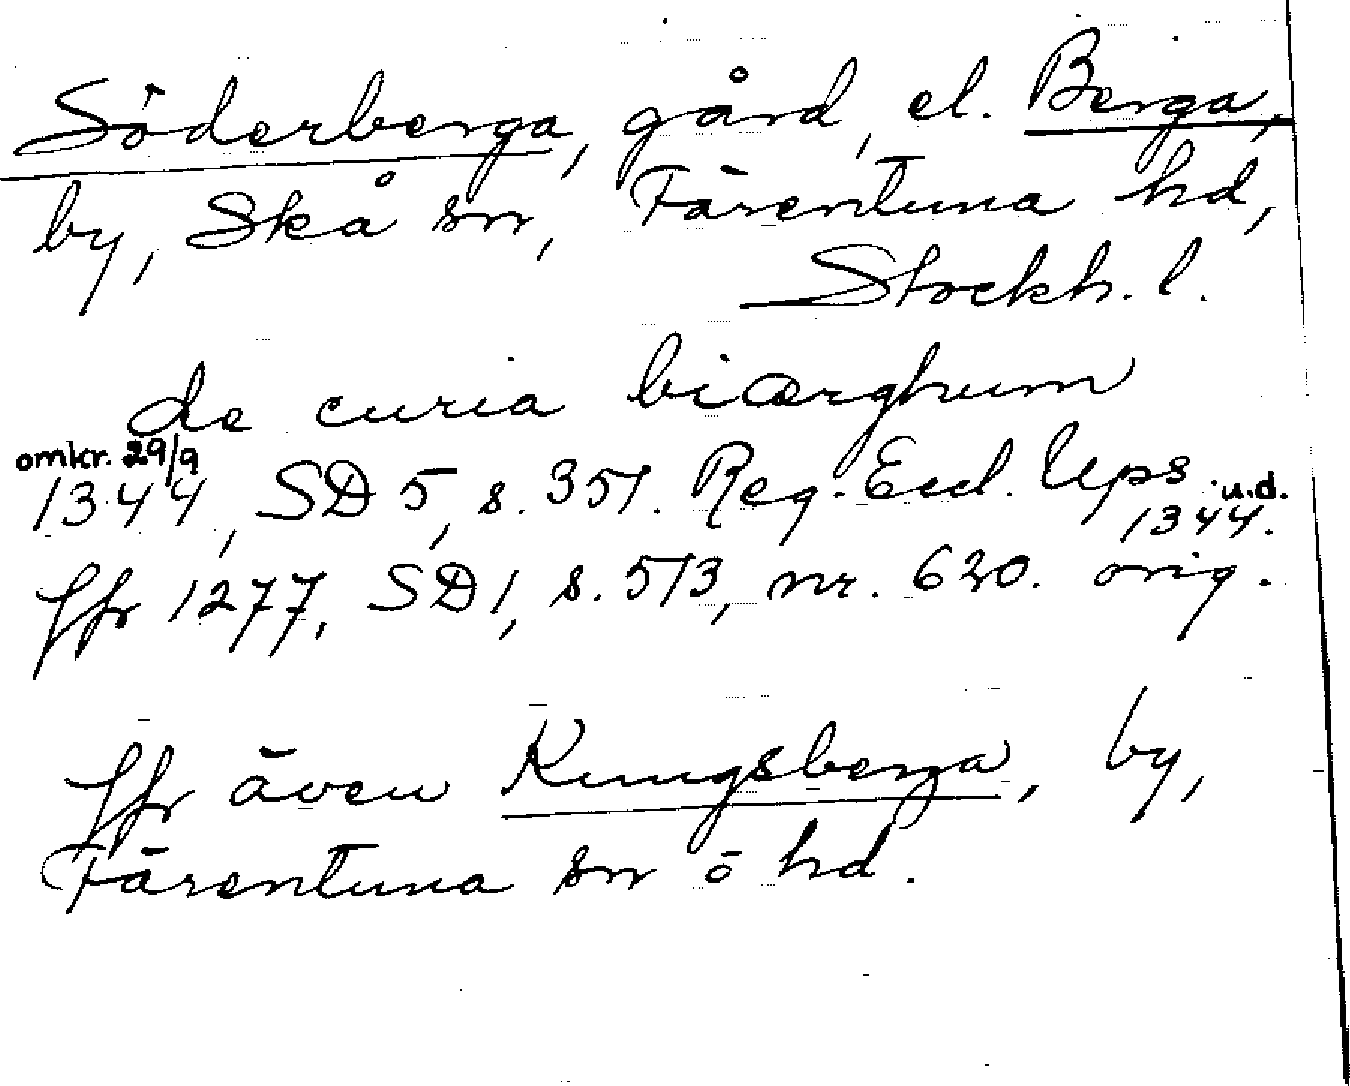 Söderberga, gård, el. Berga,
by, Skå sn, Färentuna hd,
Stockh. l.
de curia biærghum
omkr. 29/9
1344, SD 5, s. 351. Reg. Eccl. Ups u.d.
1344.
Jfr 1277, SD 1, s. 513, nr. 620. orig.
Jfr även Kungsberga, by,
Färentuna sn o hd.